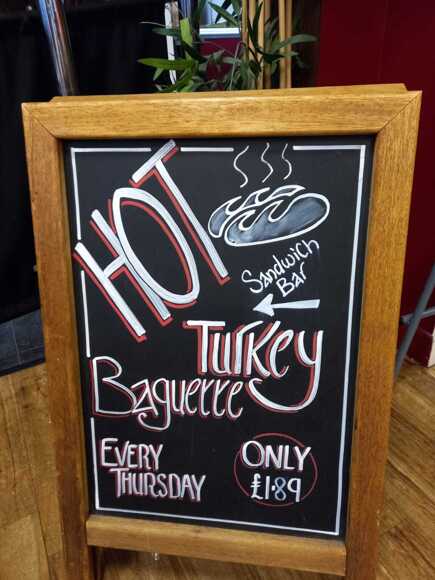 HOT
Sandwich
Bar
Turkey
Baguette
EVERY
THURSDAY
ONLY
£1.89